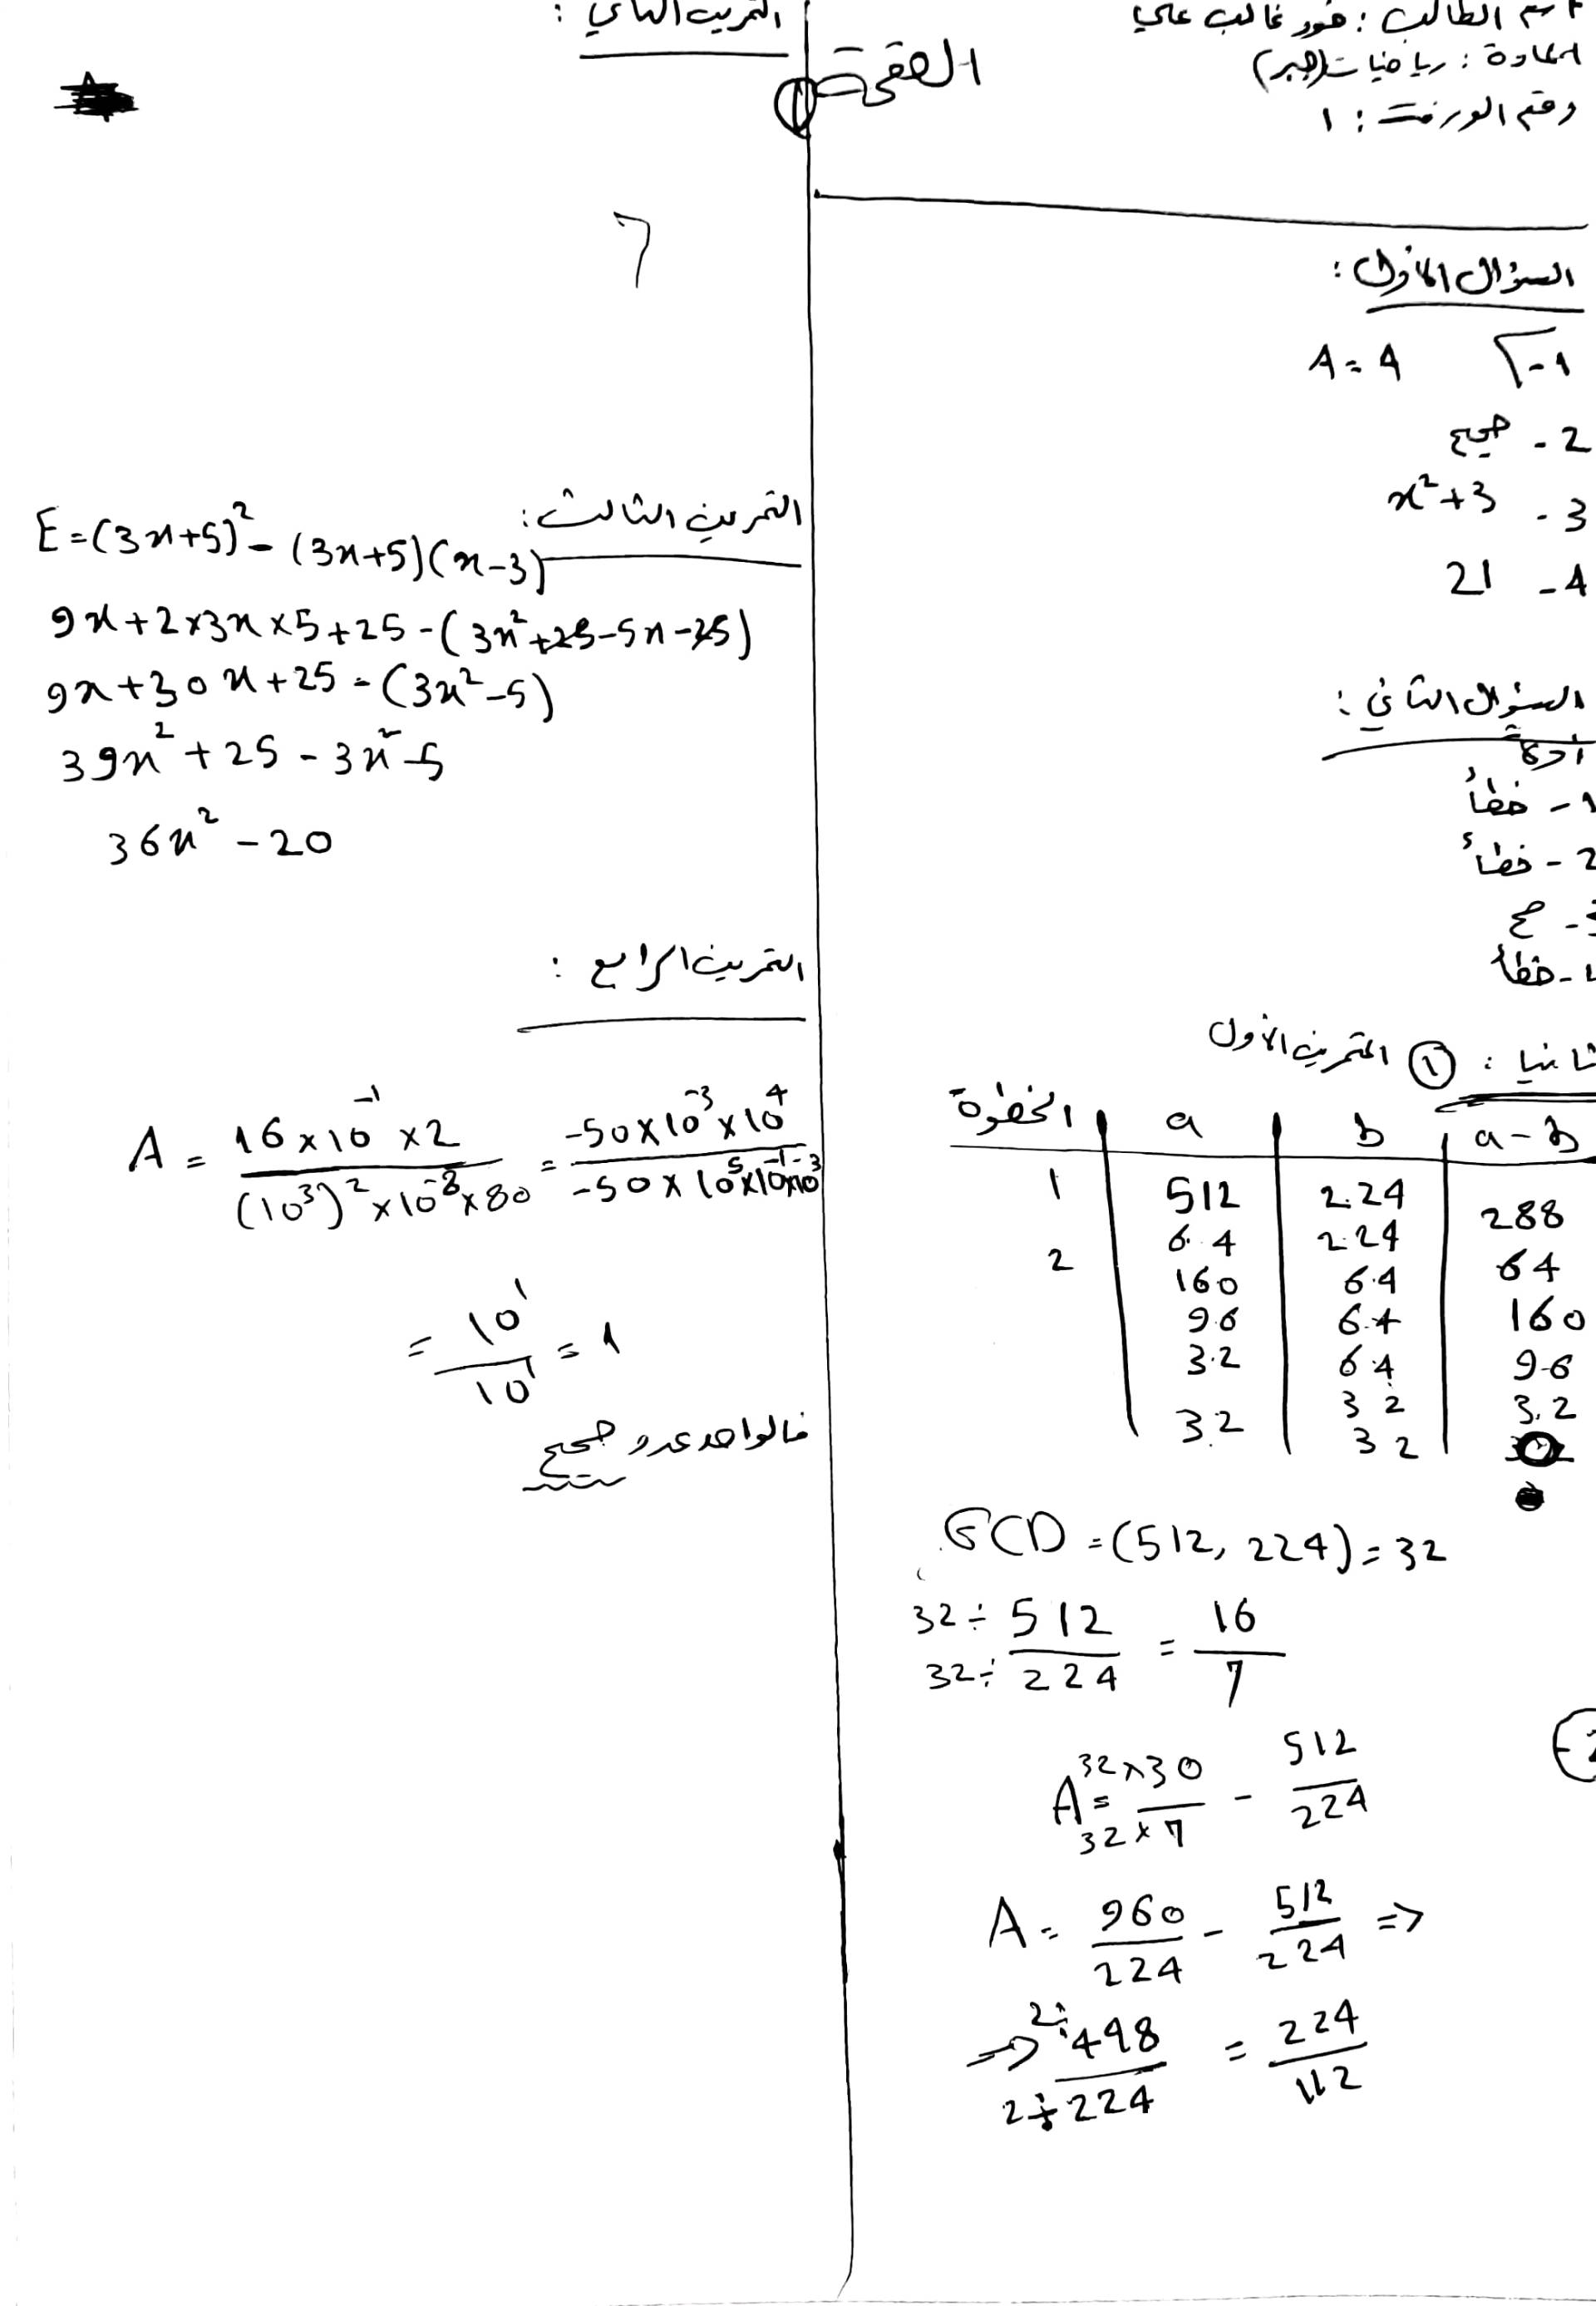 اسم الطالب : فهد غالب علي
المادة : رياضيات (جبر)
رقم الورقة : ١
الصفحة ①
السؤال الأول :
١- A = 4
2 - صحيح
3 - x²+3
4 - 21
السؤال الثاني :
١ - خطأ
2 - خطأ
صح
خطأ
ثانيا : ① التمرين الأول
الخطوة a b a-b
1 512 224 288
64 224 64
2 160 64 160
96 64 96
32 64
32 32
32 32
GCD = (512, 224) = 32
32÷ 512 / 32÷ 224 = 16/7
A = 32×30 / 32×7 - 512/224
A = 960/224 - 512/224 =>
=> 2÷ 448 / 2÷ 224 = 224/112
التمرين الثاني :
التمرين الثالث :
E = (3x+5)² - (3x+5)(x-3)
9x+2×3x×5+25-(3x²+25-5x-25)
9x+30x+25-(3x²-5)
39x²+25-3x²-5
36x²-20
التمرين الرابع :
A = 16×10⁻¹×2 / (10³)²×10⁻⁸×80 = -50×10⁻³×10⁴ / -50×10⁵×10⁻¹×10⁻³
= 10¹/10¹ = 1
فالواحد عدد صحيح